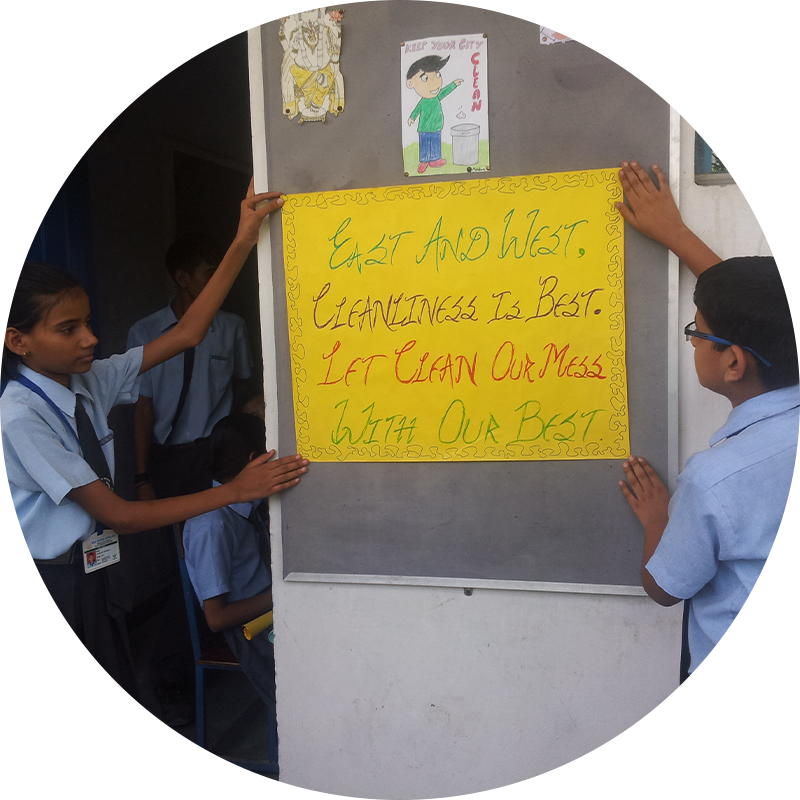 KEEP YOUR CITY
CLEAN
EAST AND WEST,
CLEANLINESS IS BEST.
LET CLEAN OUR MESS
WITH OUR BEST